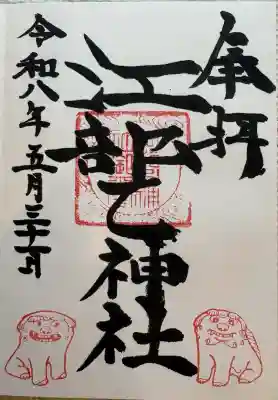 奉拝
江部乙神社
令和八年五月三十一日